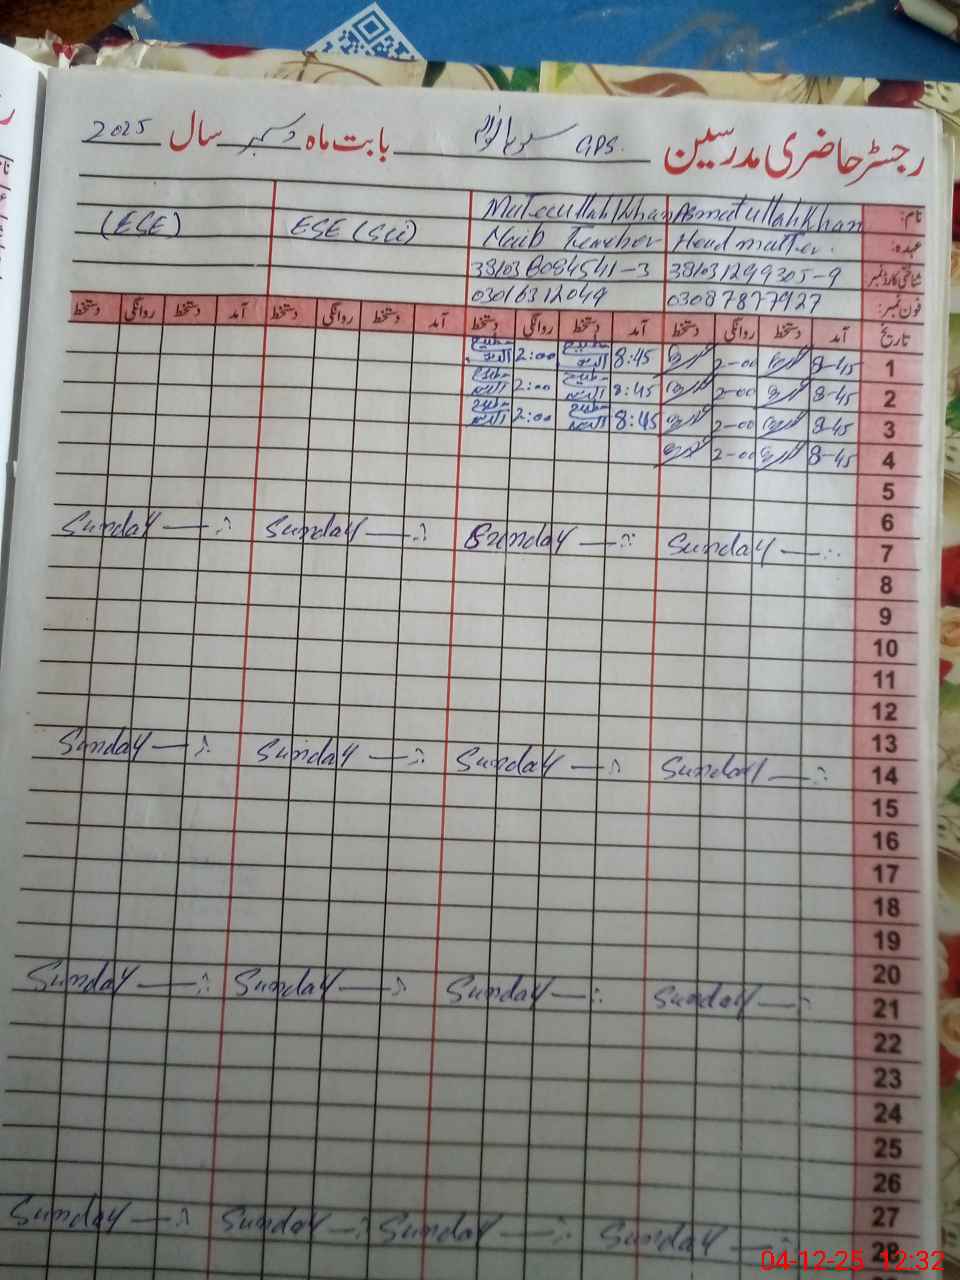 رجسٹر حاضری مدرسین GPS. بابت ماہ دسمبر سال 2025
نام: Asmatullah Khan Mateeullah Khan
عہدہ: Head master. Naib Teacher ESE (Sci) (ESE)
شناختی کارڈ نمبر 381031299305-9 38103 6084541-3
فون نمبر: 03087877927 03016312049
تاریخ آمد دستخط روانگی دستخط آمد دستخط روانگی دستخط آمد دستخط روانگی دستخط آمد دستخط روانگی دستخط
1 8-45 2-00 8:45 2:00
2 8-45 2-00 8:45 2:00
3 8-45 2-00 8:45 2:00
4 8-45 2-00
5
6
7 Sunday Sunday Sunday Sunday
8
9
10
11
12
13
14 Sunday Sunday Sunday Sunday
15
16
17
18
19
20
21 Sunday Sunday Sunday Sunday
22
23
24
25
26
27
28 Sunday Sunday Sunday Sunday
04-12-25 12:32